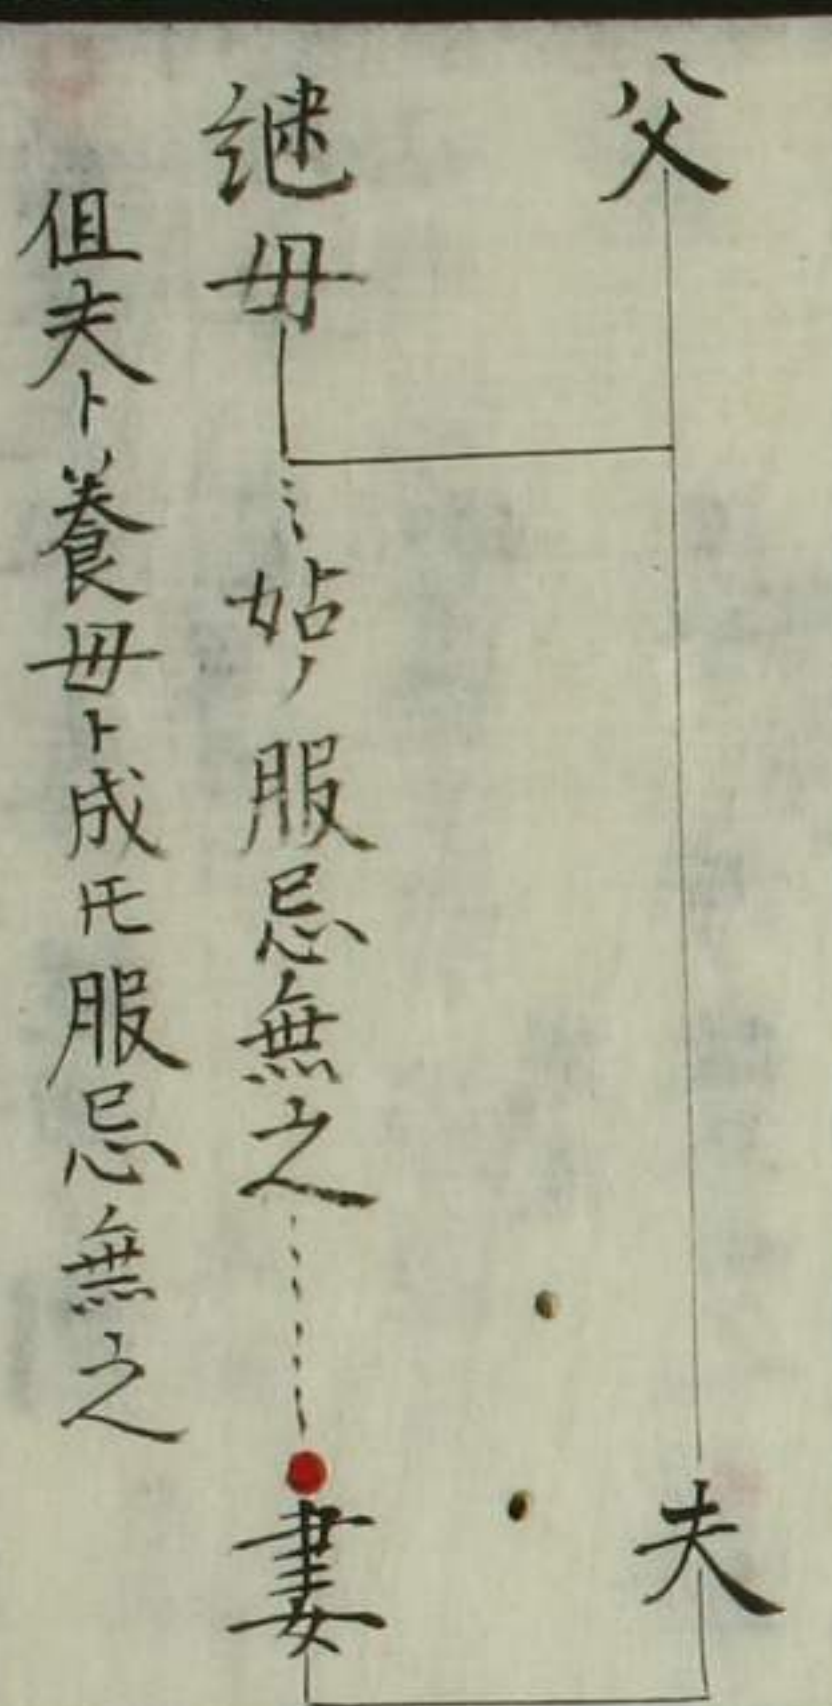 父
夫
継母
姑ノ服忌無之
妻
但夫ト養母ト成トモ服忌無之